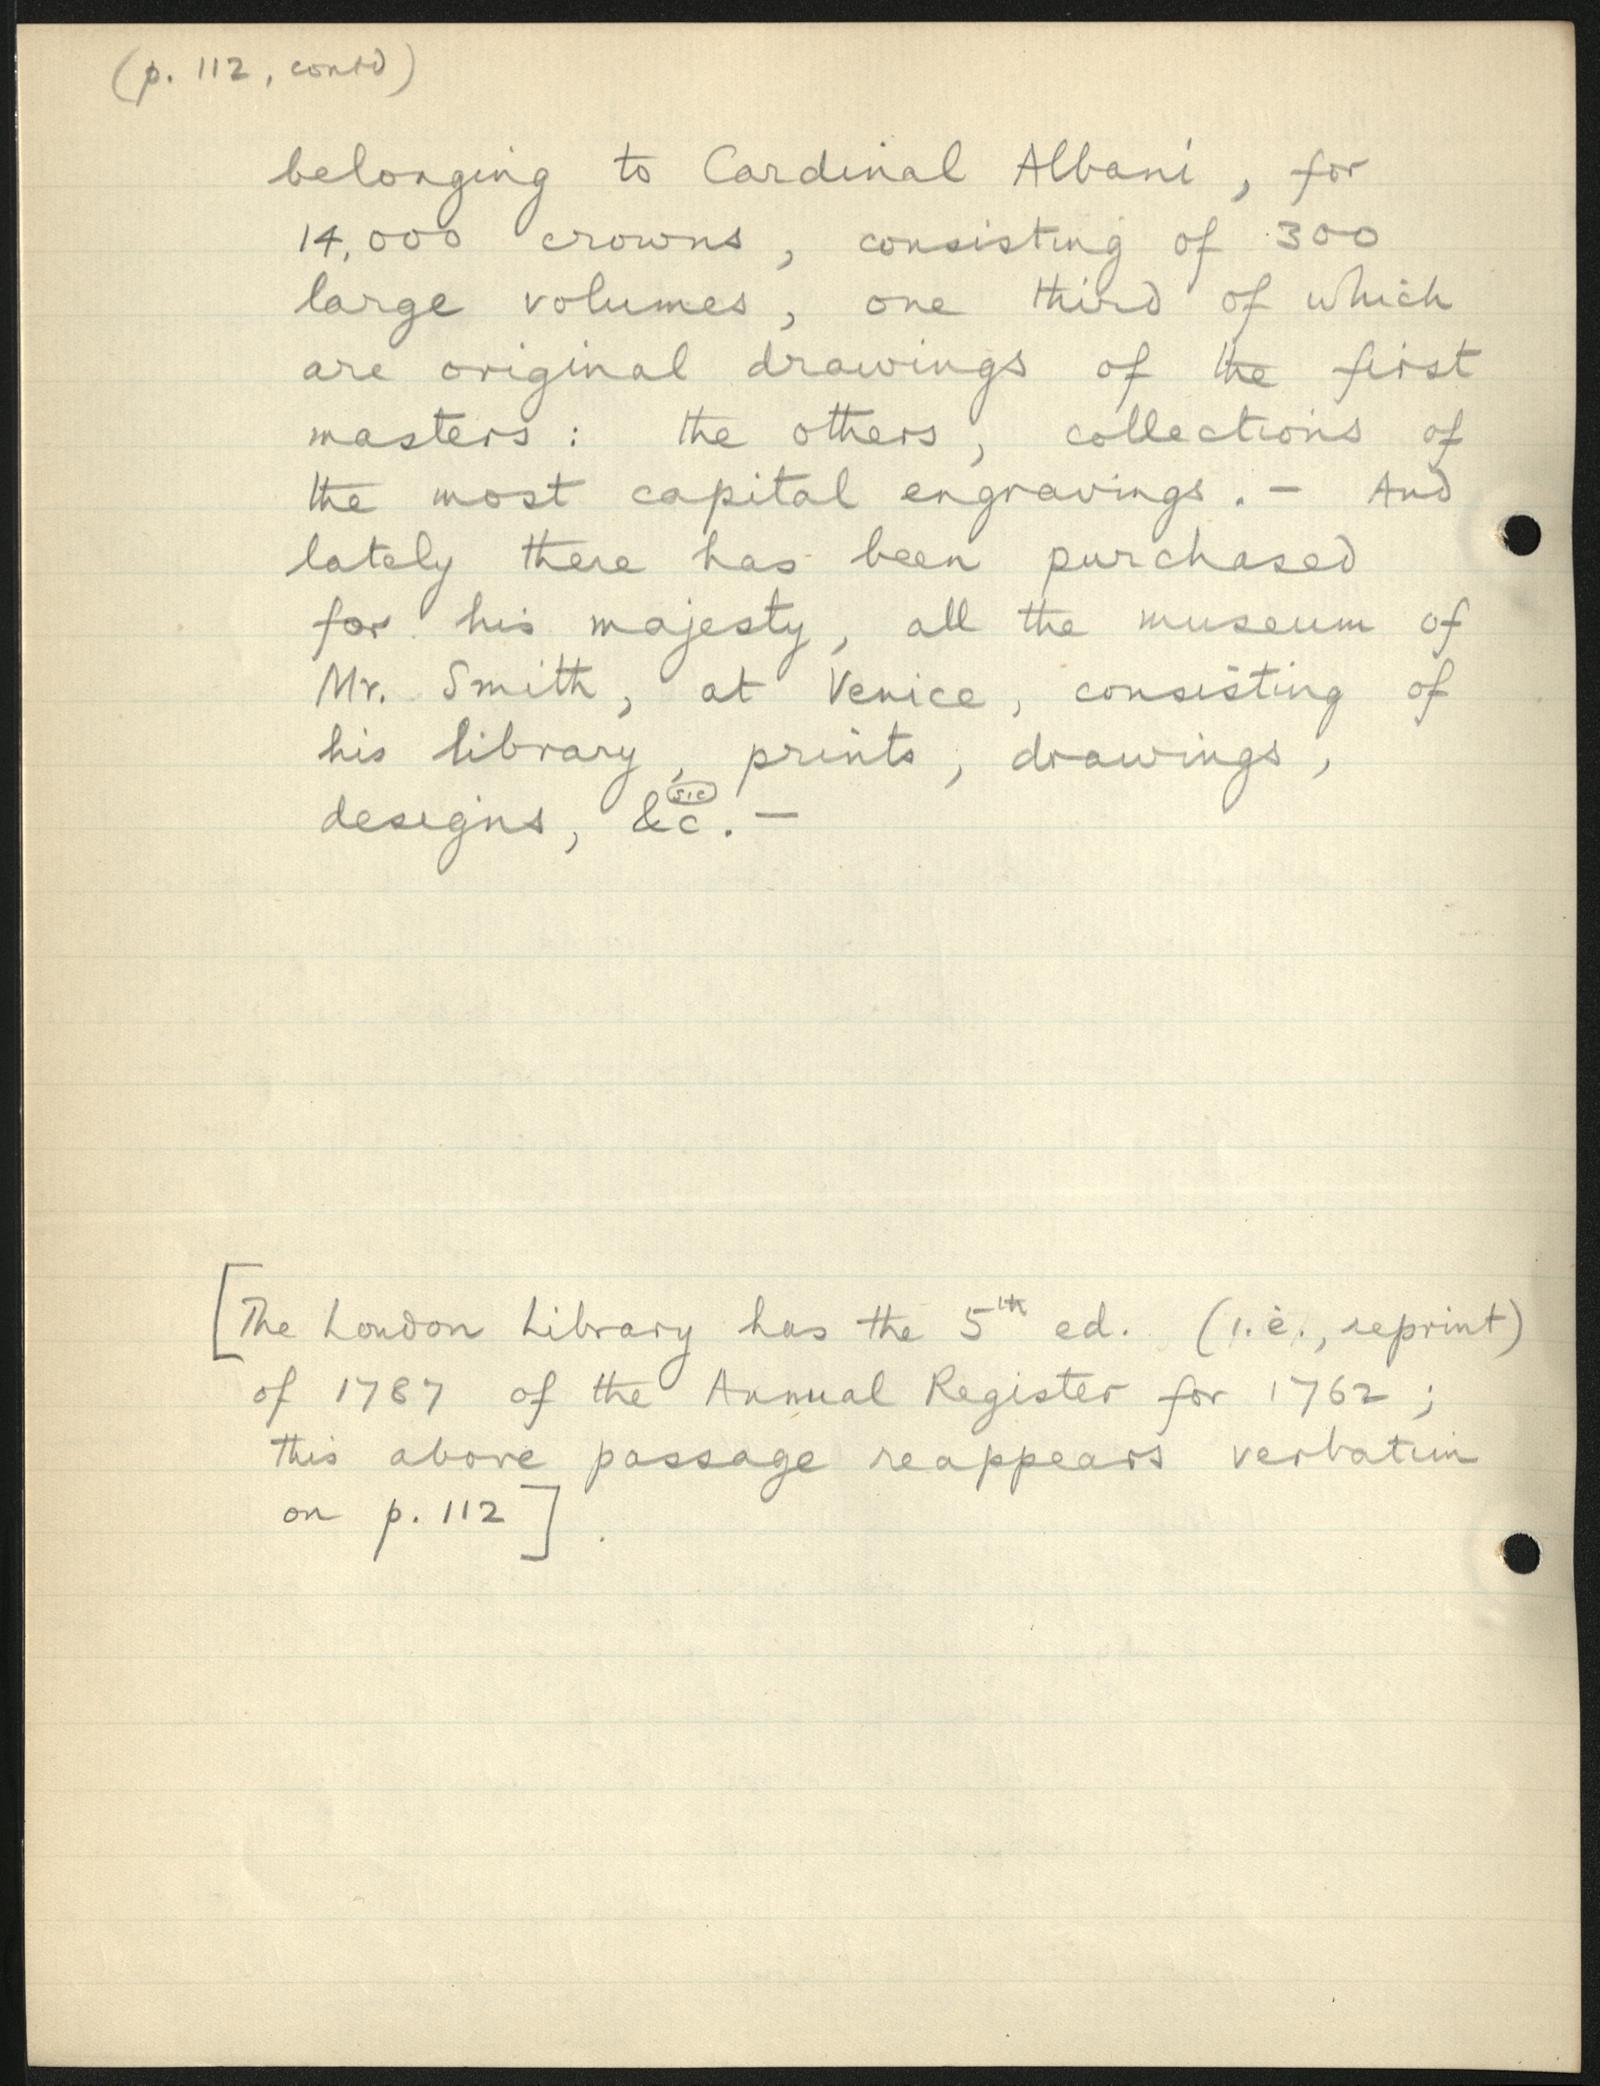 (p. 112, contd)
belonging to Cardinal Albani, for
14,000 crowns, consisting of 300
large volumes, one third of which
are original drawings of the first
masters: the others, collections of
the most capital engravings. — And
lately there has been purchased
for his majesty, all the museum of
Mr. Smith, at Venice, consisting of
his library, prints, drawings,
sic
designs, &c. —
[The London Library has the 5th ed. (i.e., reprint)
of 1787 of the Annual Register for 1762;
this above passage reappears verbatim
on p. 112].